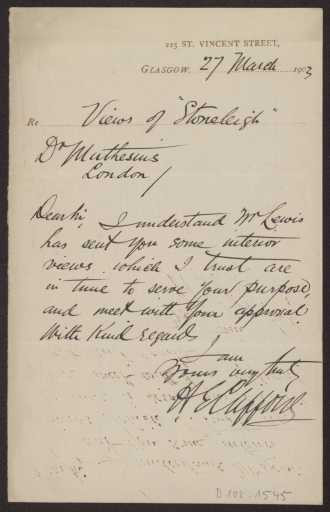 225 ST. VINCENT STREET,
GLASGOW, 27 March 1903
Re Views of "Stoneleigh"
Dr Muthesius
London /
Dear Sir, I understand Mr Lewis
has sent you some interior
views which I trust are
in time to serve your purpose,
and meet with your approval.
With Kind regards
I am
Yours very truly
H E Clifford
D 102-1545